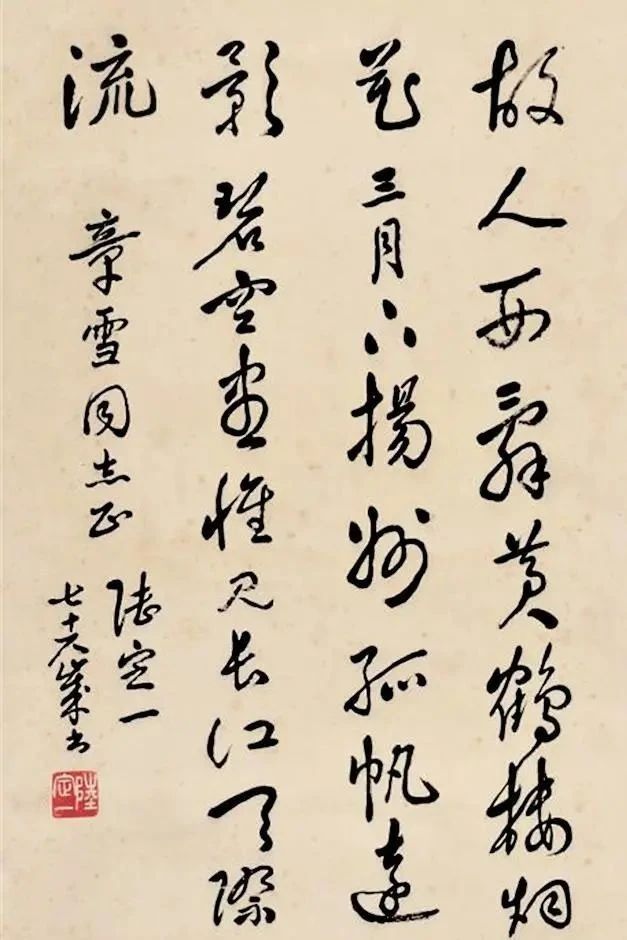 故人西辭黄鶴樓烟
花三月下揚州孤帆遠
影碧空盡惟見長江天際
流
章雪同志正
陸定一
七十六歲書
陸定一